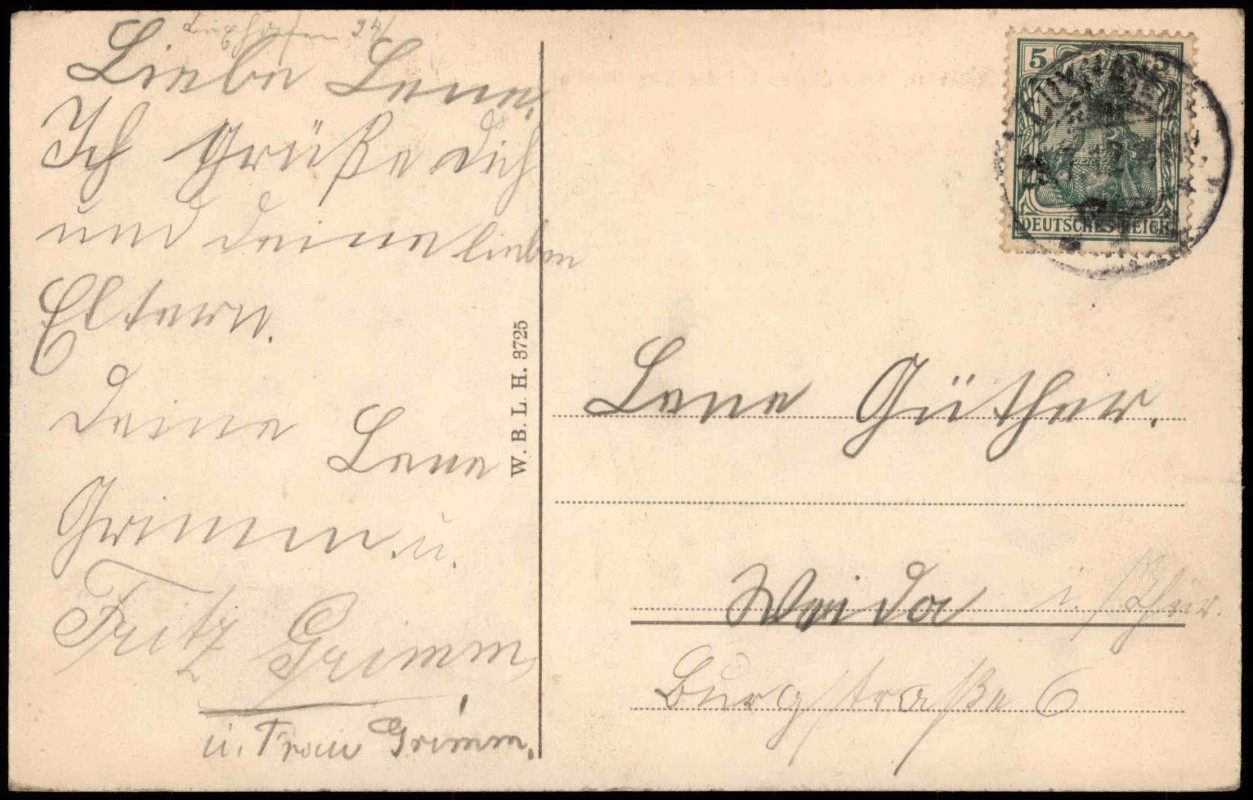 Liebe Lene.
Ich Grüße dich
und deine lieben
Eltern.
deine Lene
Grimm u.
Fritz Grimm,
u. Frau Grimm.
W. B. L. H. 3725
5 5
DEUTSCHES REICH
Lene Güther.
Weida i./Thür.
Burgstraße 6